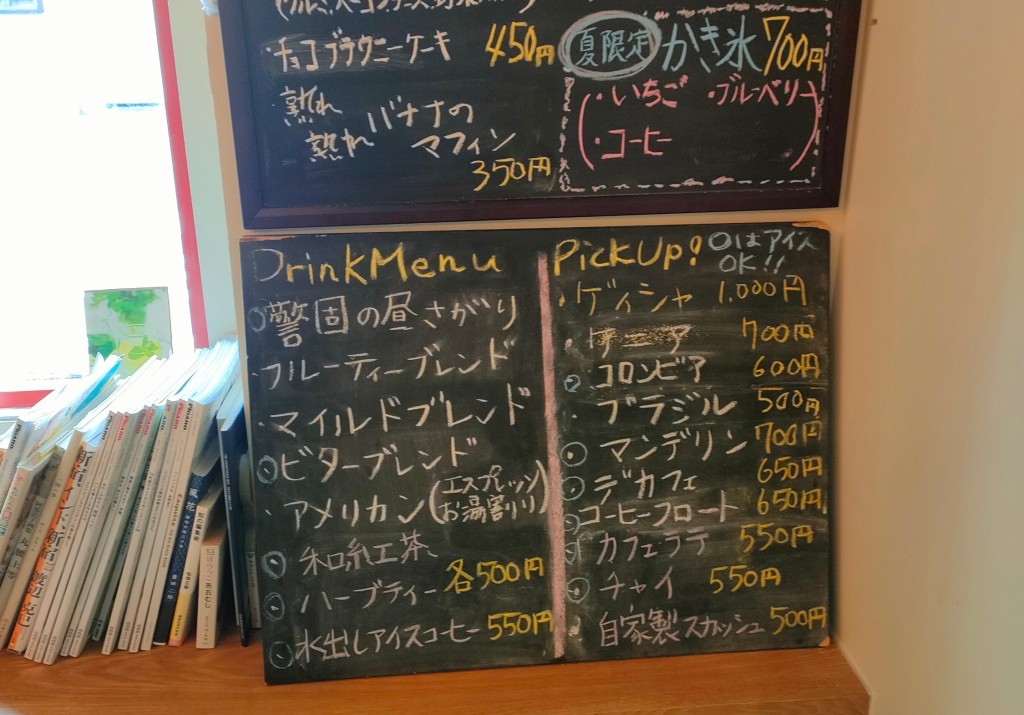 ・チョコブラウニーケーキ 450円
・熟れ熟れバナナのマフィン
350円
夏限定 かき氷 700円
・いちご ・ブルーベリー
・コーヒー
DrinkMenu
○警固の昼さがり
・フルーティーブレンド
・マイルドブレンド
○ビターブレンド
・アメリカン(エスプレッソお湯割り)
○和紅茶
○ハーブティー 各500円
○水出しアイスコーヒー 550円
PickUp! ○はアイスOK!!
・ゲイシャ 1.000円
700円
○コロンビア 600円
・ブラジル 500円
○マンデリン 700円
○デカフェ 650円
○コーヒーフロート 650円
○カフェラテ 550円
○チャイ 550円
○自家製スカッシュ 500円